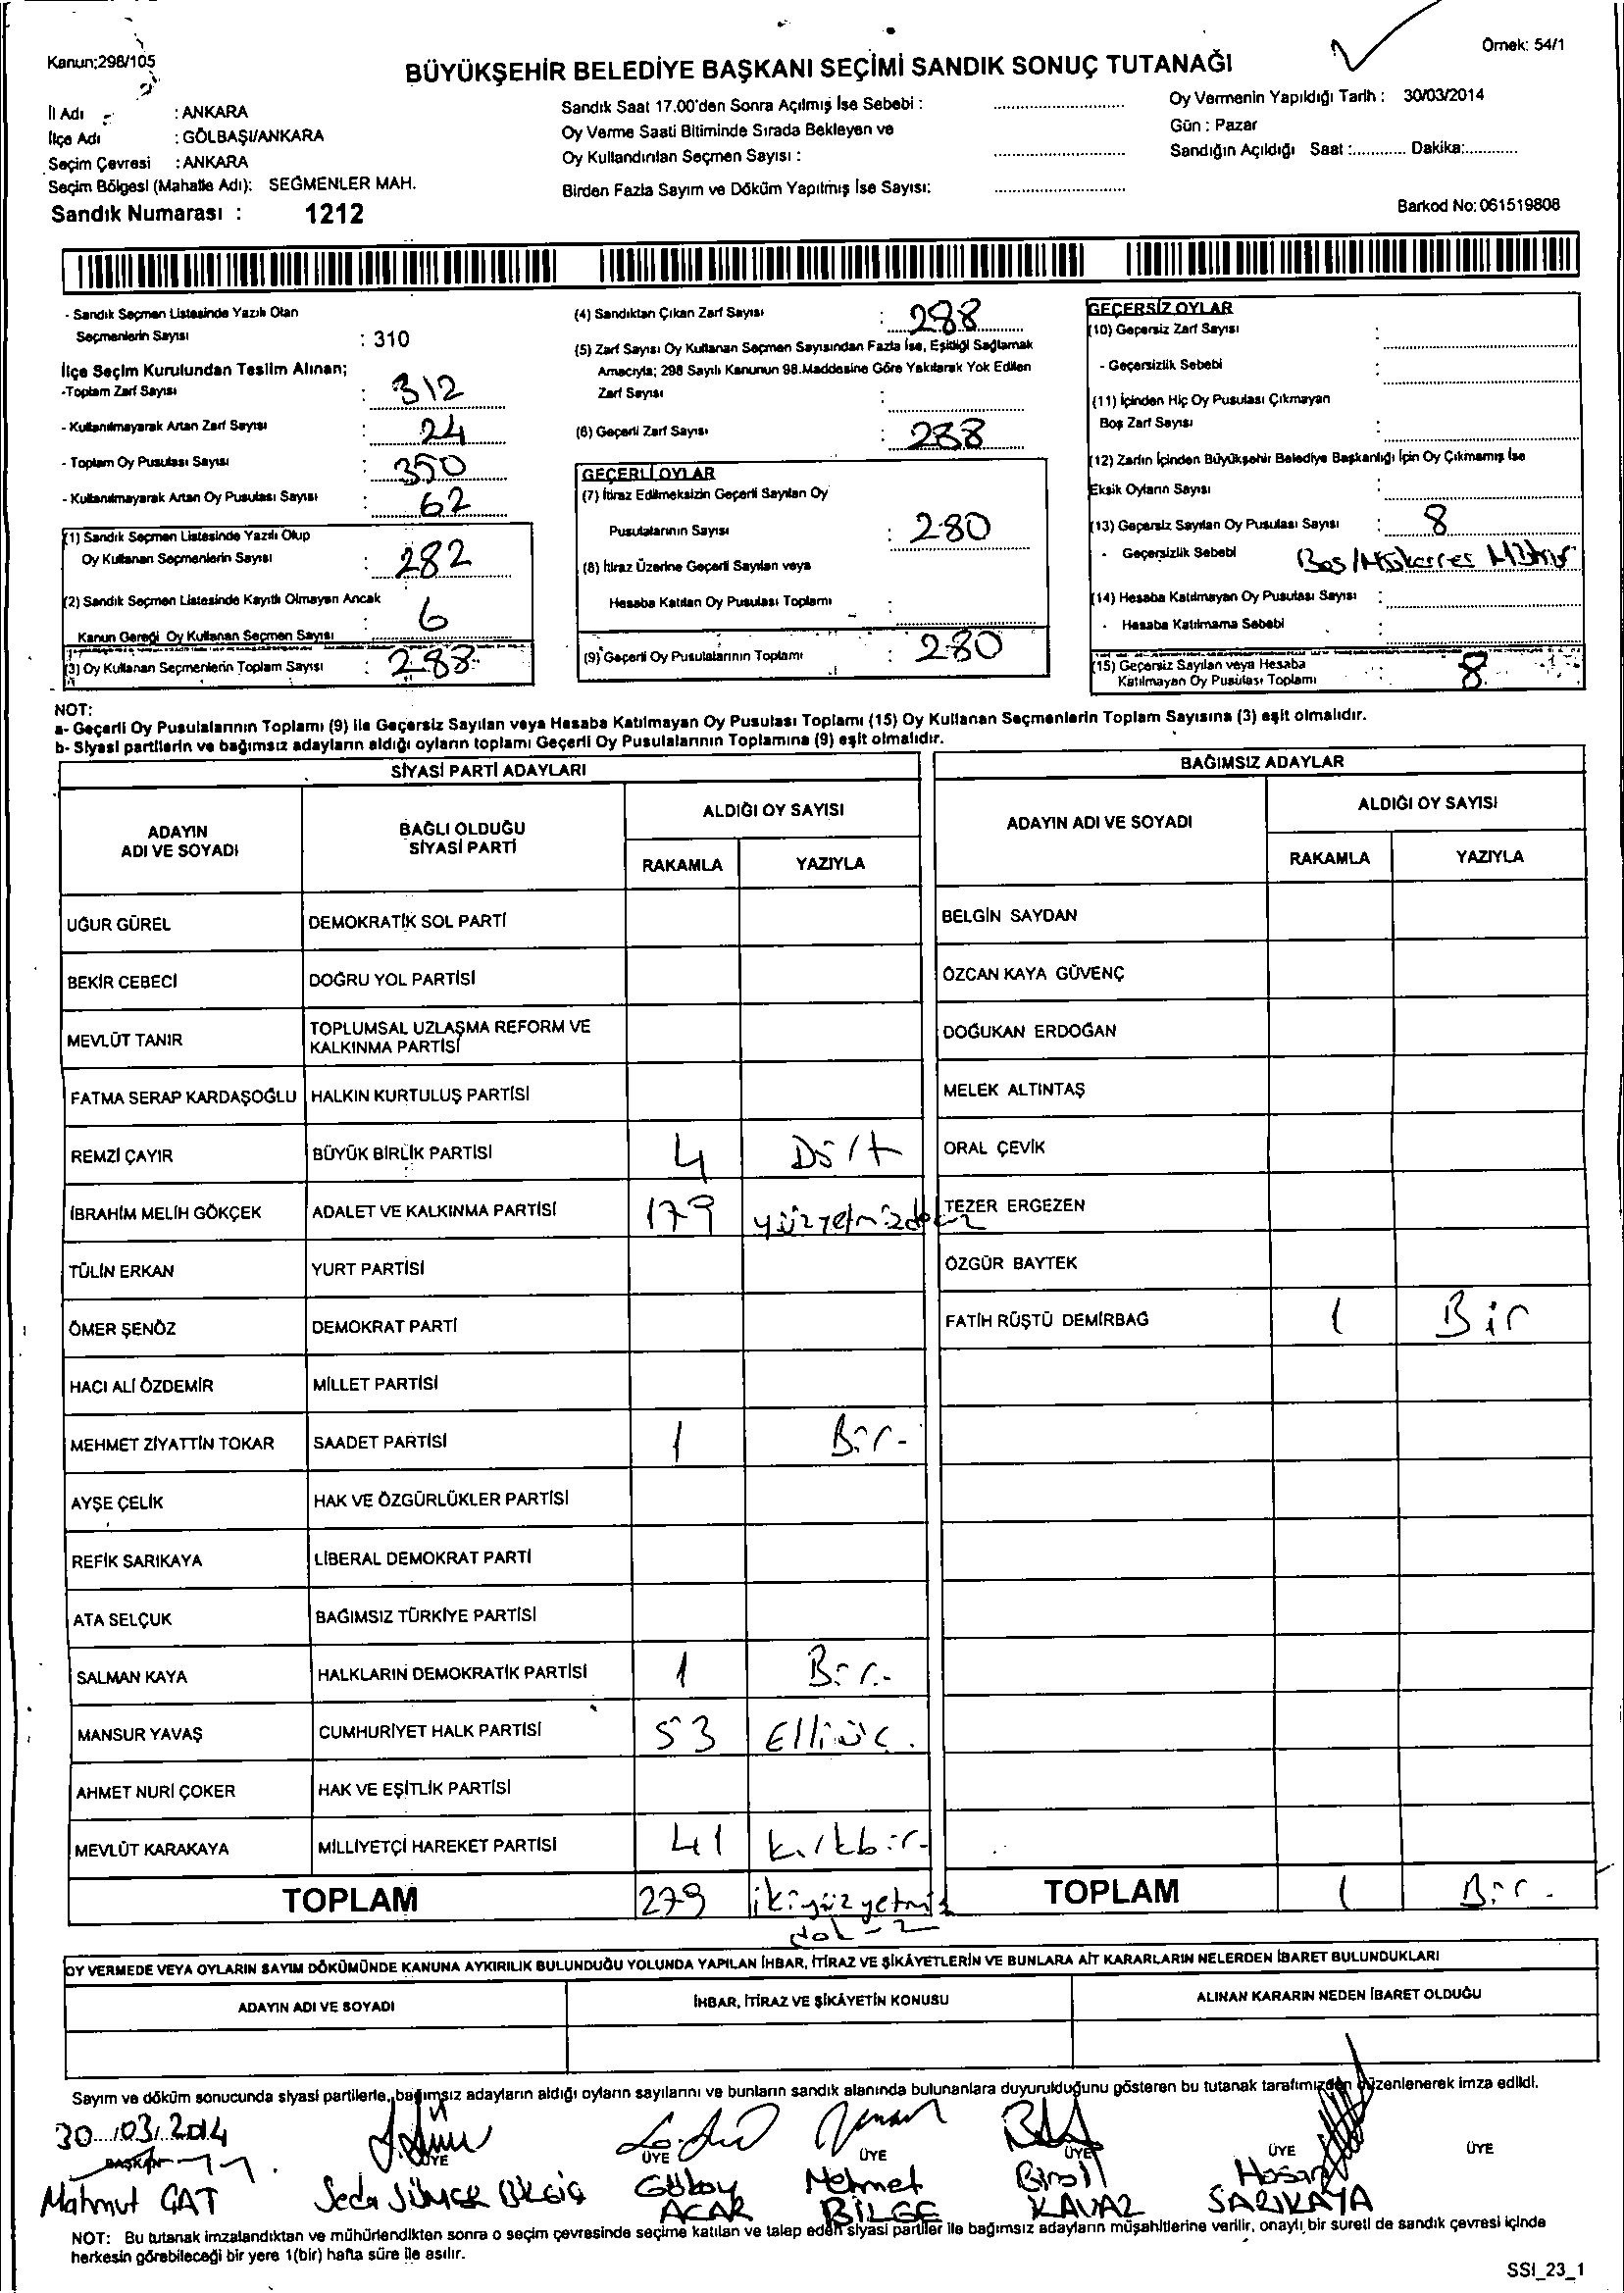 Kanun;298/105
BÜYÜKŞEHİR BELEDİYE BAŞKANI SEÇİMİ SANDIK SONUÇ TUTANAĞI
Örnek: 54/1
İl Adı : ANKARA
İlçe Adı : GÖLBAŞI/ANKARA
Seçim Çevresi : ANKARA
Seçim Bölgesi (Mahalle Adı): SEĞMENLER MAH.
Sandık Numarası : 1212
Sandık Saat 17.00'den Sonra Açılmış İse Sebebi : ................
Oy Verme Saati Bitiminde Sırada Bekleyen ve
Oy Kullandırılan Seçmen Sayısı : ................
Birden Fazla Sayım ve Döküm Yapılmış İse Sayısı: ................
Oy Vermenin Yapıldığı Tarih : 30/03/2014
Gün : Pazar
Sandığın Açıldığı Saat :............ Dakika:............
Barkod No: 061519808
- Sandık Seçmen Listesinde Yazılı Olan
Seçmenlerin Sayısı : 310
İlçe Seçim Kurulundan Teslim Alınan;
-Toplam Zarf Sayısı : 312
- Kullanılmayarak Artan Zarf Sayısı : 24
- Toplam Oy Pusulası Sayısı : 350
- Kullanılmayarak Artan Oy Pusulası Sayısı : 62
(1) Sandık Seçmen Listesinde Yazılı Olup
Oy Kullanan Seçmenlerin Sayısı : 282
(2) Sandık Seçmen Listesinde Kayıtlı Olmayan Ancak
Kanun Gereği Oy Kullanan Seçmen Sayısı : 6
(3) Oy Kullanan Seçmenlerin Toplam Sayısı : 288
(4) Sandıktan Çıkan Zarf Sayısı : 288
(5) Zarf Sayısı Oy Kullanan Seçmen Sayısından Fazla İse, Eşitliği Sağlamak
Amacıyla; 298 Sayılı Kanunun 98.Maddesine Göre Yakılarak Yok Edilen
Zarf Sayısı :
(6) Geçerli Zarf Sayısı : 288
GEÇERLİ OYLAR
(7) İtiraz Edilmeksizin Geçerli Sayılan Oy
Pusulalarının Sayısı : 280
(8) İtiraz Üzerine Geçerli Sayılan veya
Hesaba Katılan Oy Pusulası Toplamı :
(9) Geçerli Oy Pusulalarının Toplamı : 280
GEÇERSİZ OYLAR
(10) Geçersiz Zarf Sayısı :
- Geçersizlik Sebebi :
(11) İçinden Hiç Oy Pusulası Çıkmayan
Boş Zarf Sayısı :
(12) Zarfın İçinden Büyükşehir Belediye Başkanlığı İçin Oy Çıkmamış İse
Eksik Oyların Sayısı :
(13) Geçersiz Sayılan Oy Pusulası Sayısı : 8
- Geçersizlik Sebebi Boş/Mükerrer Mühür
(14) Hesaba Katılmayan Oy Pusulası Sayısı :
- Hesaba Katılmama Sebebi :
(15) Geçersiz Sayılan veya Hesaba
Katılmayan Oy Pusulası Toplamı : 8
NOT:
a- Geçerli Oy Pusulalarının Toplamı (9) ile Geçersiz Sayılan veya Hesaba Katılmayan Oy Pusulası Toplamı (15) Oy Kullanan Seçmenlerin Toplam Sayısına (3) eşit olmalıdır.
b- Siyasi partilerin ve bağımsız adayların aldığı oyların toplamı Geçerli Oy Pusulalarının Toplamına (9) eşit olmalıdır.
SİYASİ PARTİ ADAYLARI
ADAYIN ADI VE SOYADI
BAĞLI OLDUĞU SİYASİ PARTİ
ALDIĞI OY SAYISI
RAKAMLA YAZIYLA
UĞUR GÜREL DEMOKRATİK SOL PARTİ
BEKİR CEBECİ DOĞRU YOL PARTİSİ
MEVLÜT TANIR TOPLUMSAL UZLAŞMA REFORM VE KALKINMA PARTİSİ
FATMA SERAP KARDAŞOĞLU HALKIN KURTULUŞ PARTİSİ
REMZİ ÇAYIR BÜYÜK BİRLİK PARTİSİ 4 Dört
İBRAHİM MELİH GÖKÇEK ADALET VE KALKINMA PARTİSİ 179 yüzyetmişdokuz
TÜLİN ERKAN YURT PARTİSİ
ÖMER ŞENÖZ DEMOKRAT PARTİ
HACI ALİ ÖZDEMİR MİLLET PARTİSİ
MEHMET ZİYATTİN TOKAR SAADET PARTİSİ 1 Bir.
AYŞE ÇELİK HAK VE ÖZGÜRLÜKLER PARTİSİ
REFİK SARIKAYA LİBERAL DEMOKRAT PARTİ
ATA SELÇUK BAĞIMSIZ TÜRKİYE PARTİSİ
SALMAN KAYA HALKLARIN DEMOKRATİK PARTİSİ 1 Bir.
MANSUR YAVAŞ CUMHURİYET HALK PARTİSİ 53 Elliüç.
AHMET NURİ ÇOKER HAK VE EŞİTLİK PARTİSİ
MEVLÜT KARAKAYA MİLLİYETÇİ HAREKET PARTİSİ 41 kırkbir.
TOPLAM 279 ikiyüzyetmiş
BAĞIMSIZ ADAYLAR
ADAYIN ADI VE SOYADI
ALDIĞI OY SAYISI
RAKAMLA YAZIYLA
BELGİN SAYDAN
ÖZCAN KAYA GÜVENÇ
DOĞUKAN ERDOĞAN
MELEK ALTINTAŞ
ORAL ÇEVİK
TEZER ERGEZEN
ÖZGÜR BAYTEK
FATİH RÜŞTÜ DEMİRBAĞ 1 Bir
TOPLAM 1 Bir.
OY VERMEDE VEYA OYLARIN SAYIM DÖKÜMÜNDE KANUNA AYKIRILIK BULUNDUĞU YOLUNDA YAPILAN İHBAR, İTİRAZ VE ŞİKÂYETLERİN VE BUNLARA AİT KARARLARIN NELERDEN İBARET BULUNDUKLARI
ADAYIN ADI VE SOYADI
İHBAR, İTİRAZ VE ŞİKÂYETİN KONUSU
ALINAN KARARIN NEDEN İBARET OLDUĞU
Sayım ve döküm sonucunda siyasi partilerle, bağımsız adayların aldığı oyların sayılarını ve bunların sandık alanında bulunanlara duyurulduğunu gösteren bu tutanak tarafımızdan düzenlenerek imza edildi.
30/03/2014
BAŞKAN ÜYE ÜYE ÜYE ÜYE ÜYE ÜYE
Mahmut Seda Mehmet Birol Hasan
ACAR BİLGE KAVAZ SARIKAYA
NOT: Bu tutanak imzalandıktan ve mühürlendikten sonra o seçim çevresinde seçime katılan ve talep eden siyasi partiler ile bağımsız adayların müşahitlerine verilir, onaylı bir sureti de sandık çevresi içinde
herkesin görebileceği bir yere 1(bir) hafta süre ile asılır.
SSI_23_1